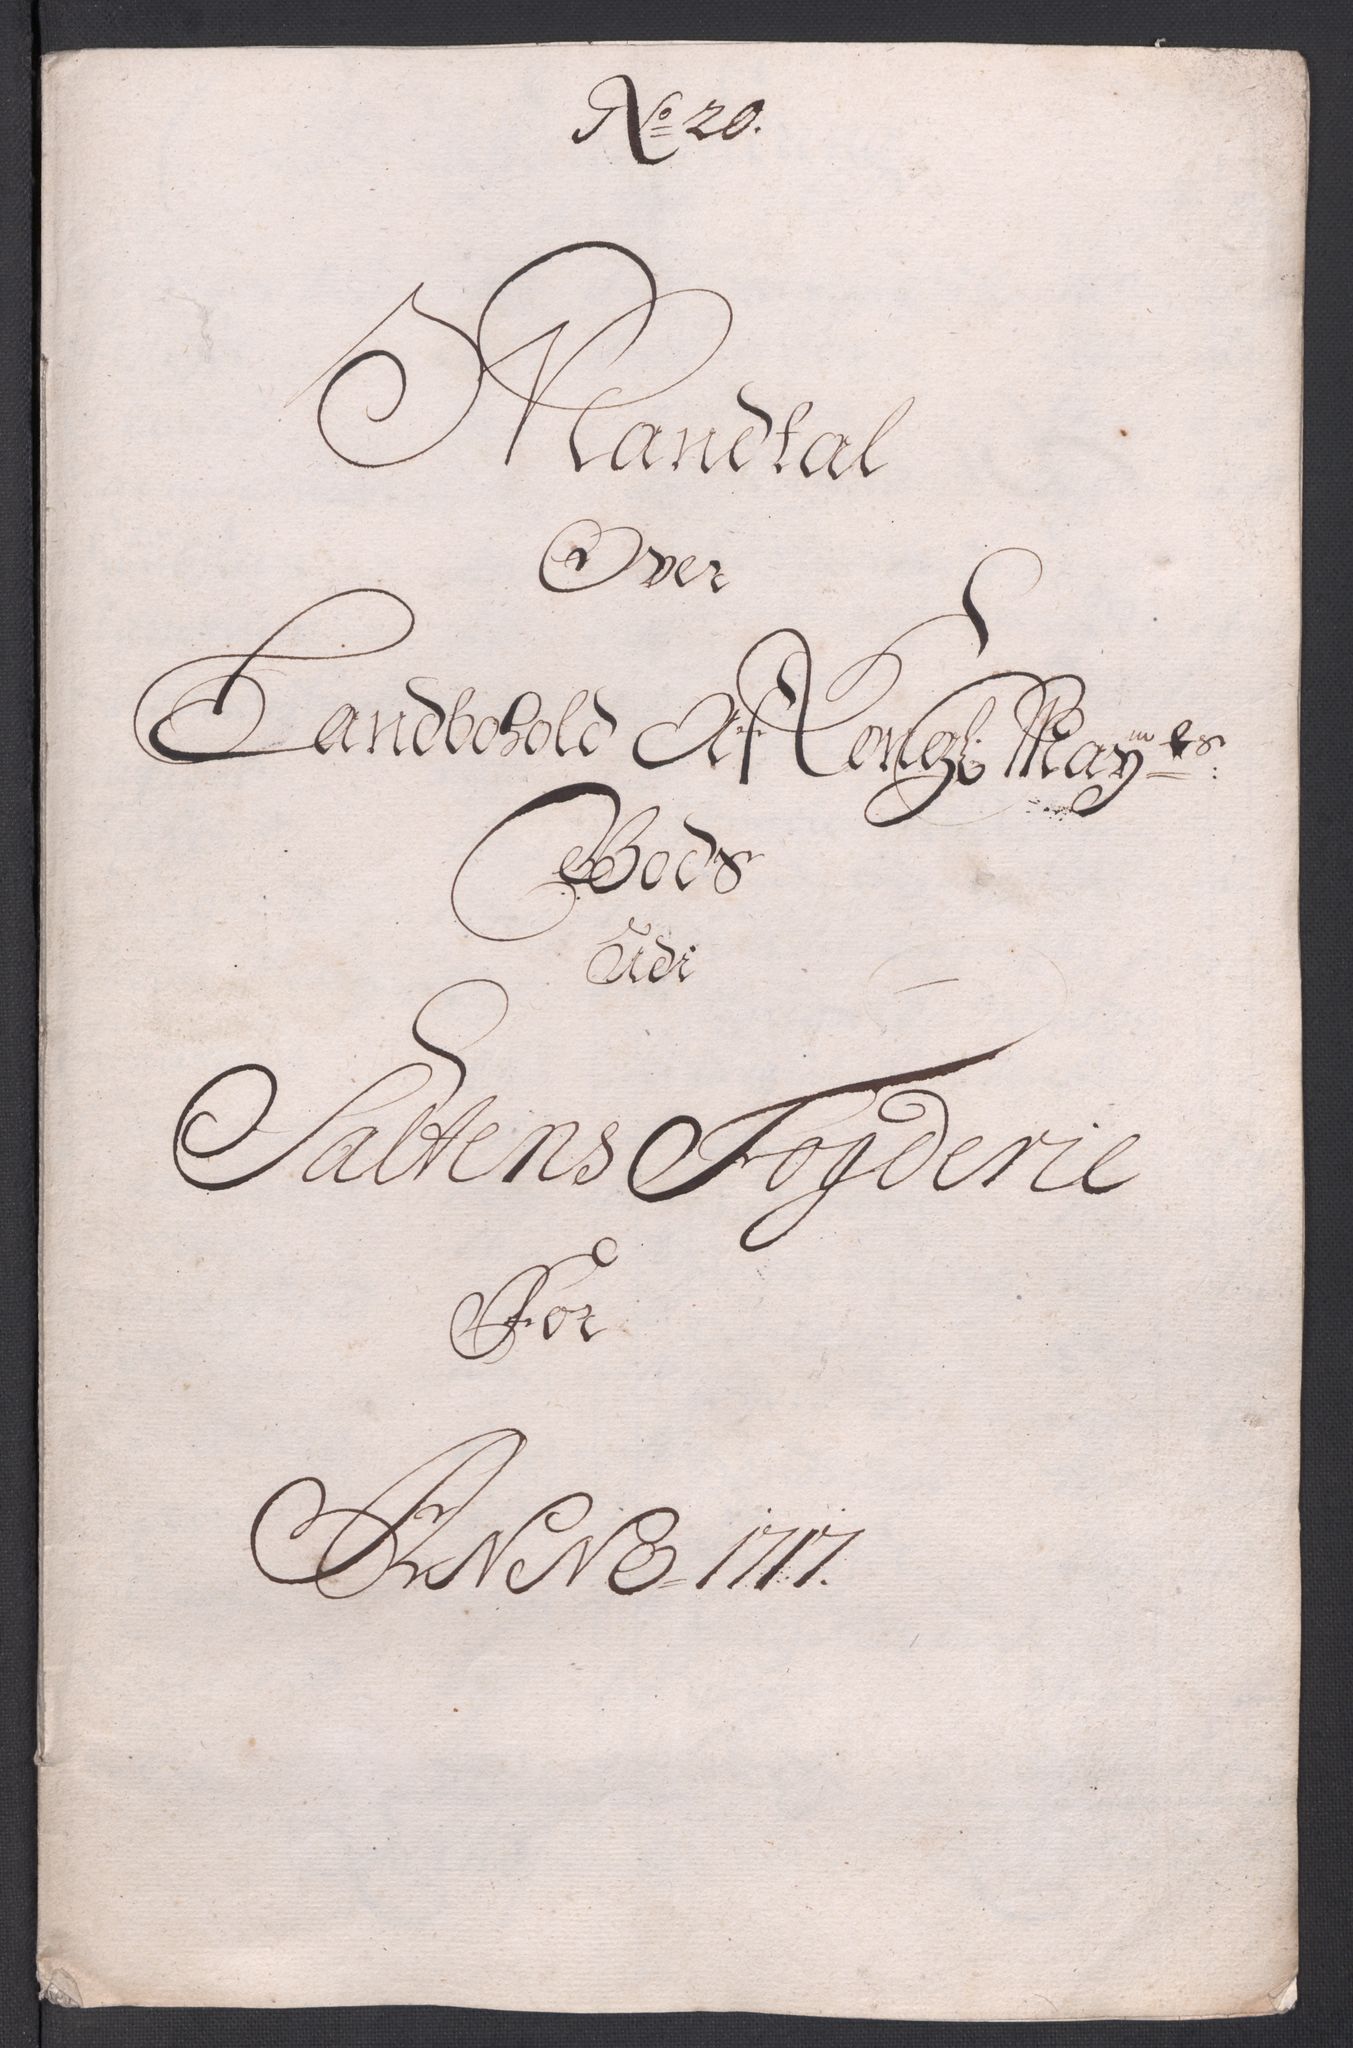 No 20.
Mandtal
Over
Landbohold Af Kongl: May:ts
Gods
Udi
Saltens Fogderie
For
ANNO 1717.